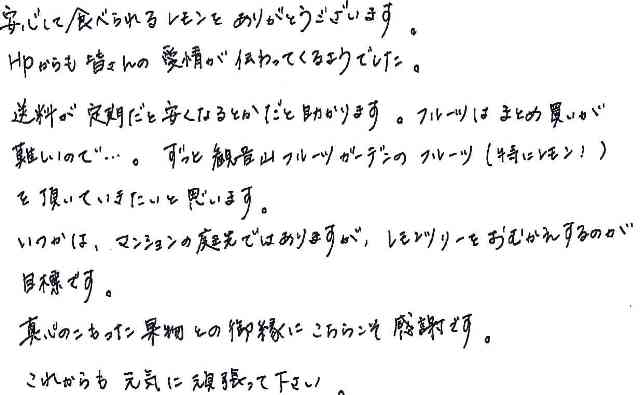 安心して食べられるレモンをありがとうございます。
HPからも皆さんの愛情が伝わってくるようでした。
送料が定期だと安くなるとかだと助かります。フルーツはまとめ買いが
難しいので…。ずっと観音山フルーツガーデンのフルーツ（特にレモン！）
を頂いていきたいと思います。
いつかは、マンションの庭先ではありますが、レモンツリーをおむかえするのが
目標です。
真心のこもった果物との御縁にこちらこそ感謝です。
これからも元気に頑張って下さい。